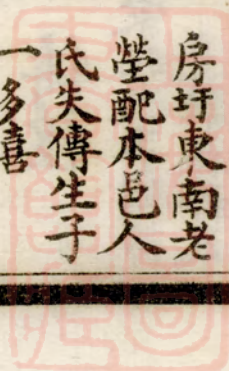 房圩東南老
塋配本邑人
氏失傳生子
一多喜